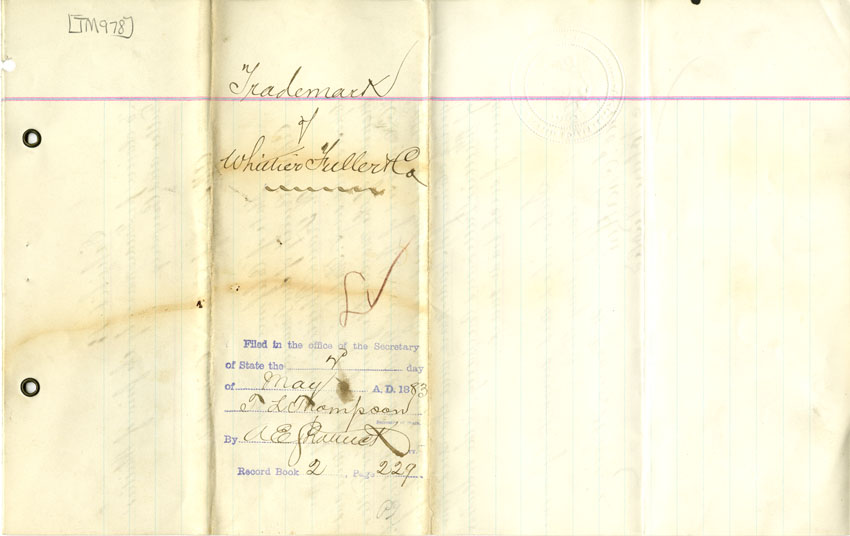 [TM978]
Trademark
of
Whittier Fuller & Co
Filed in the office of the Secretary
of State the day
of May A.D. 1883
T L Thompson
By A E
Record Book 2, Page 229.